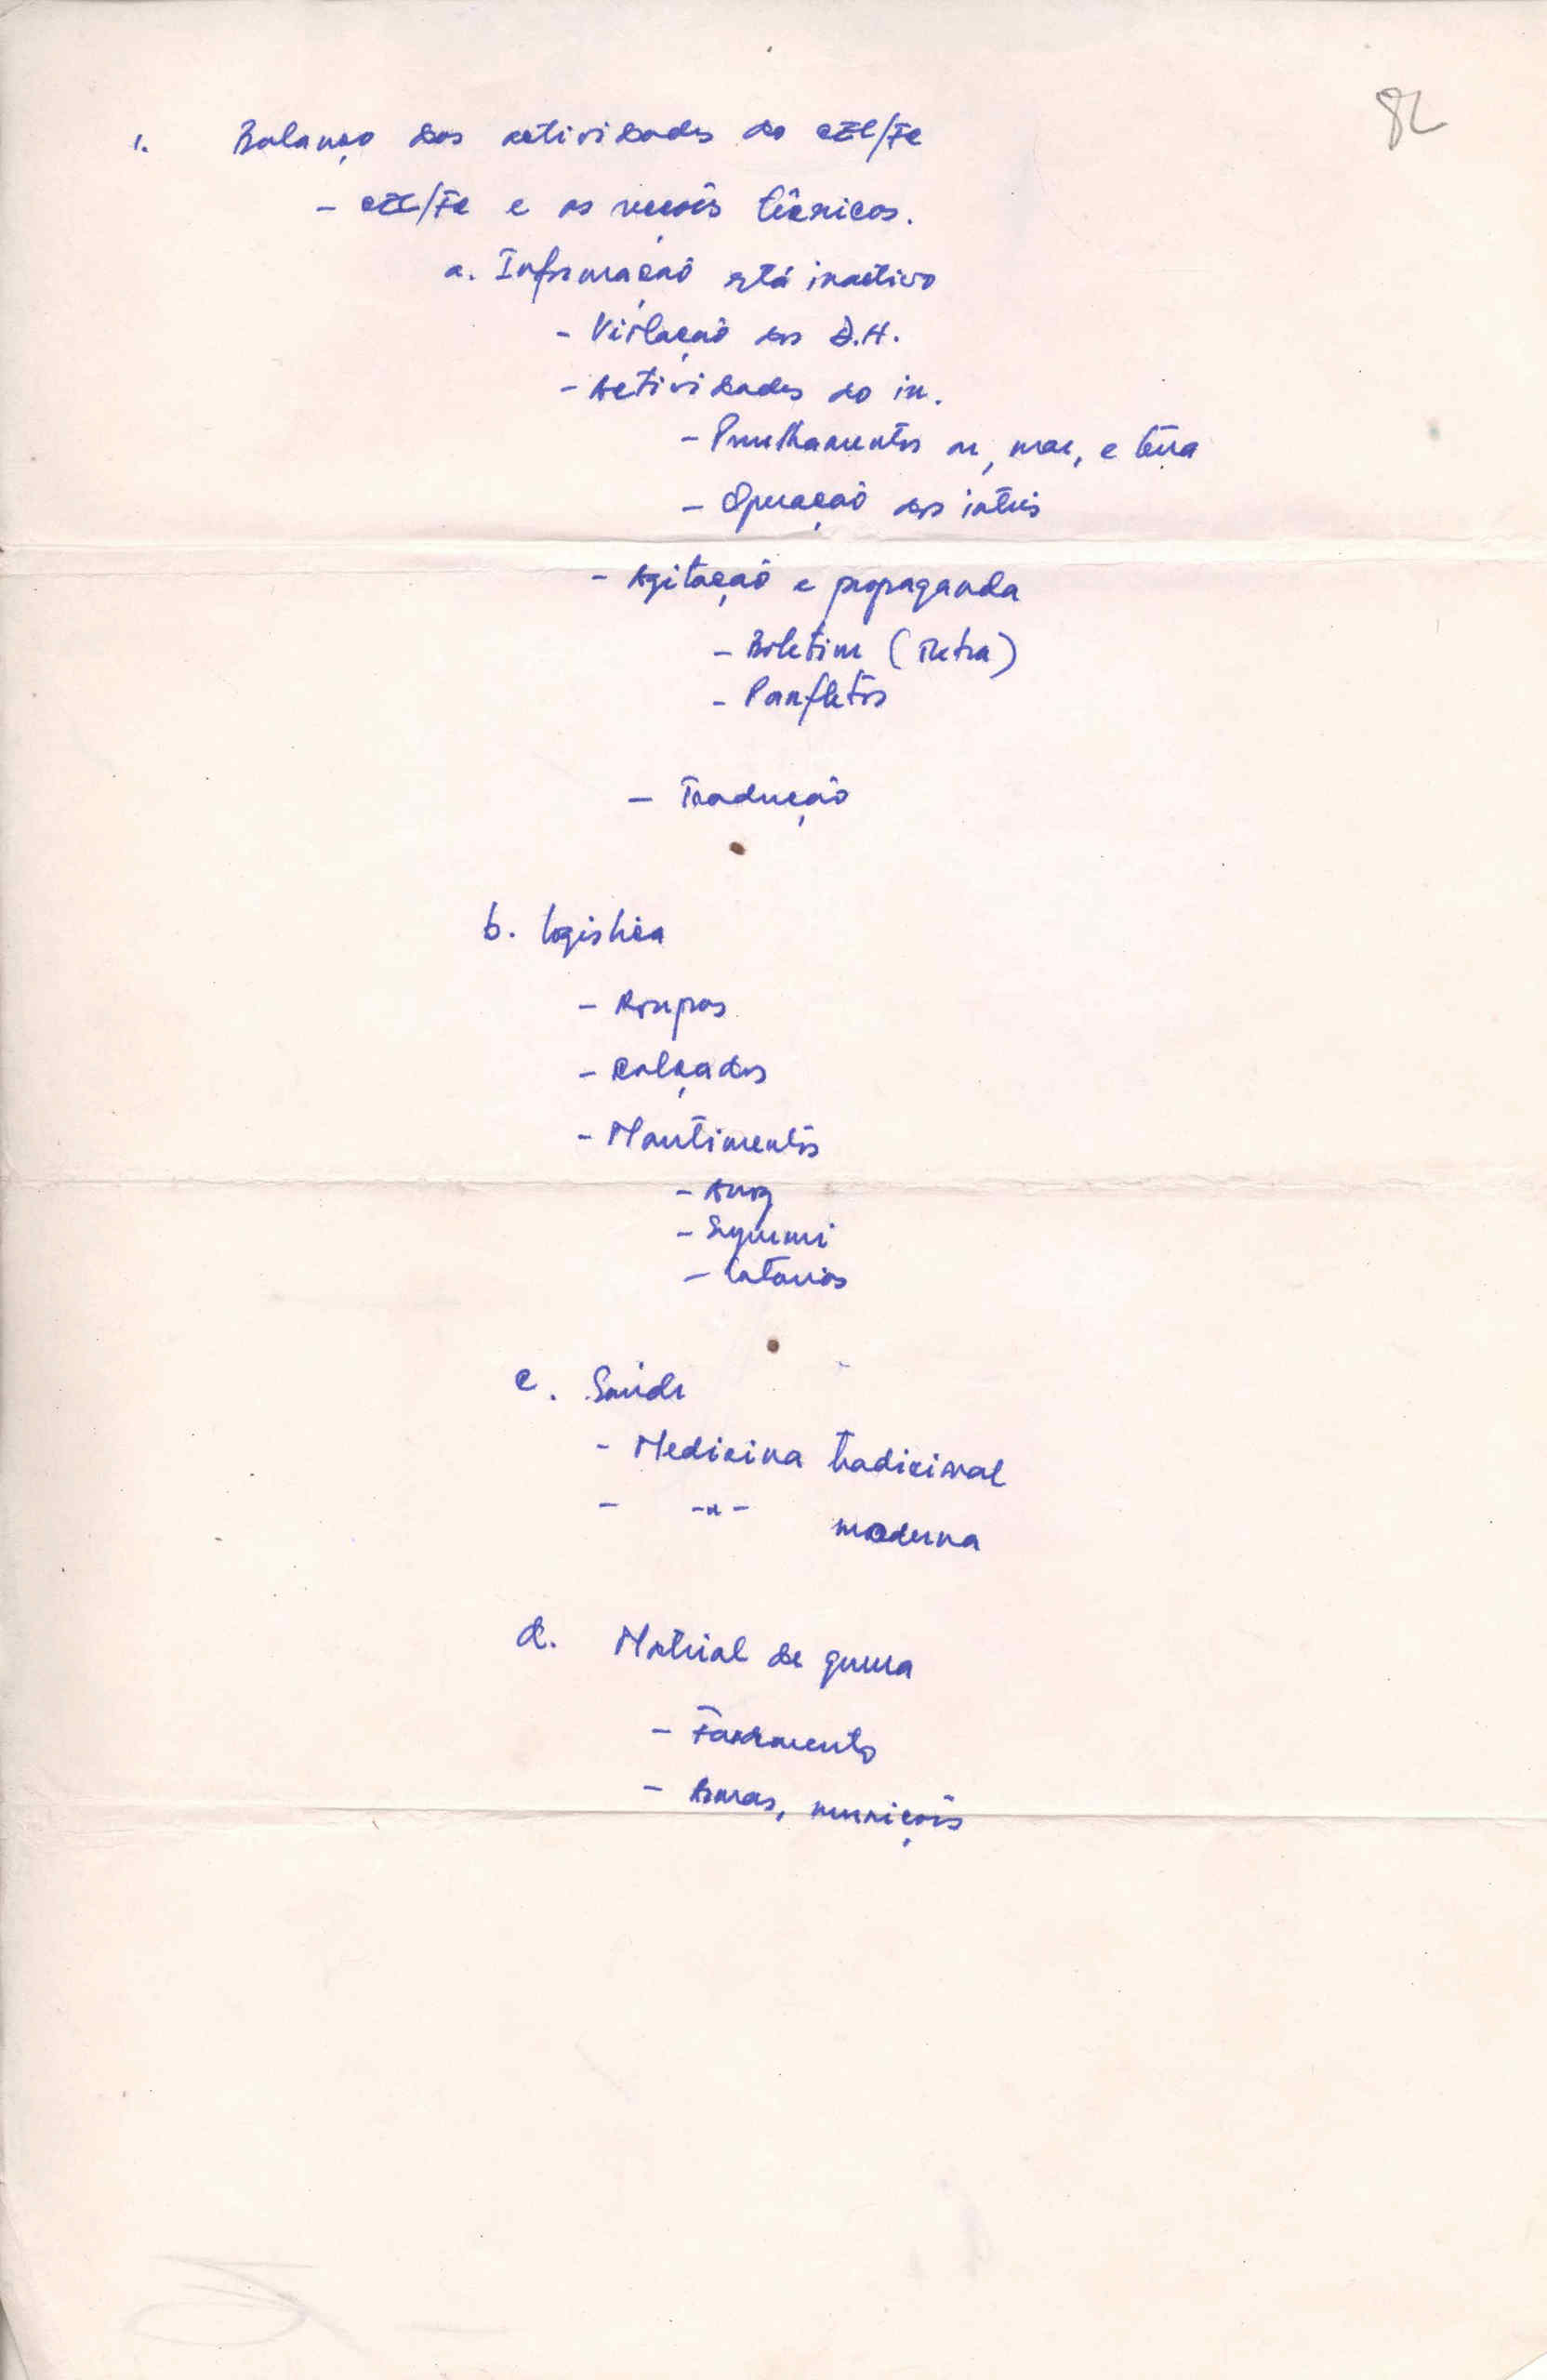 82
1. Balanço das actividades do CEL/FC
- CEL/FC e as secçoês técnicas.
a. Informaçaô está inactivo
- Violaçaô dos D.H.
- Actividades do in.
- Patrulhamentos ar, mar, e terra
- Operaçaô dos intéis
- Agitaçaô e propaganda
- Boletim (Tetra)
- Panfletos
- Traduçaô
b. Logistica
- Roupas
- Calçados
- Mantimentos
- Arroz
- Supermi
- Latarias
c. Saúde
- Medicina tradicional
- -"- moderna
d. Material de guerra
- Fardamento
- Armas, muniçoês